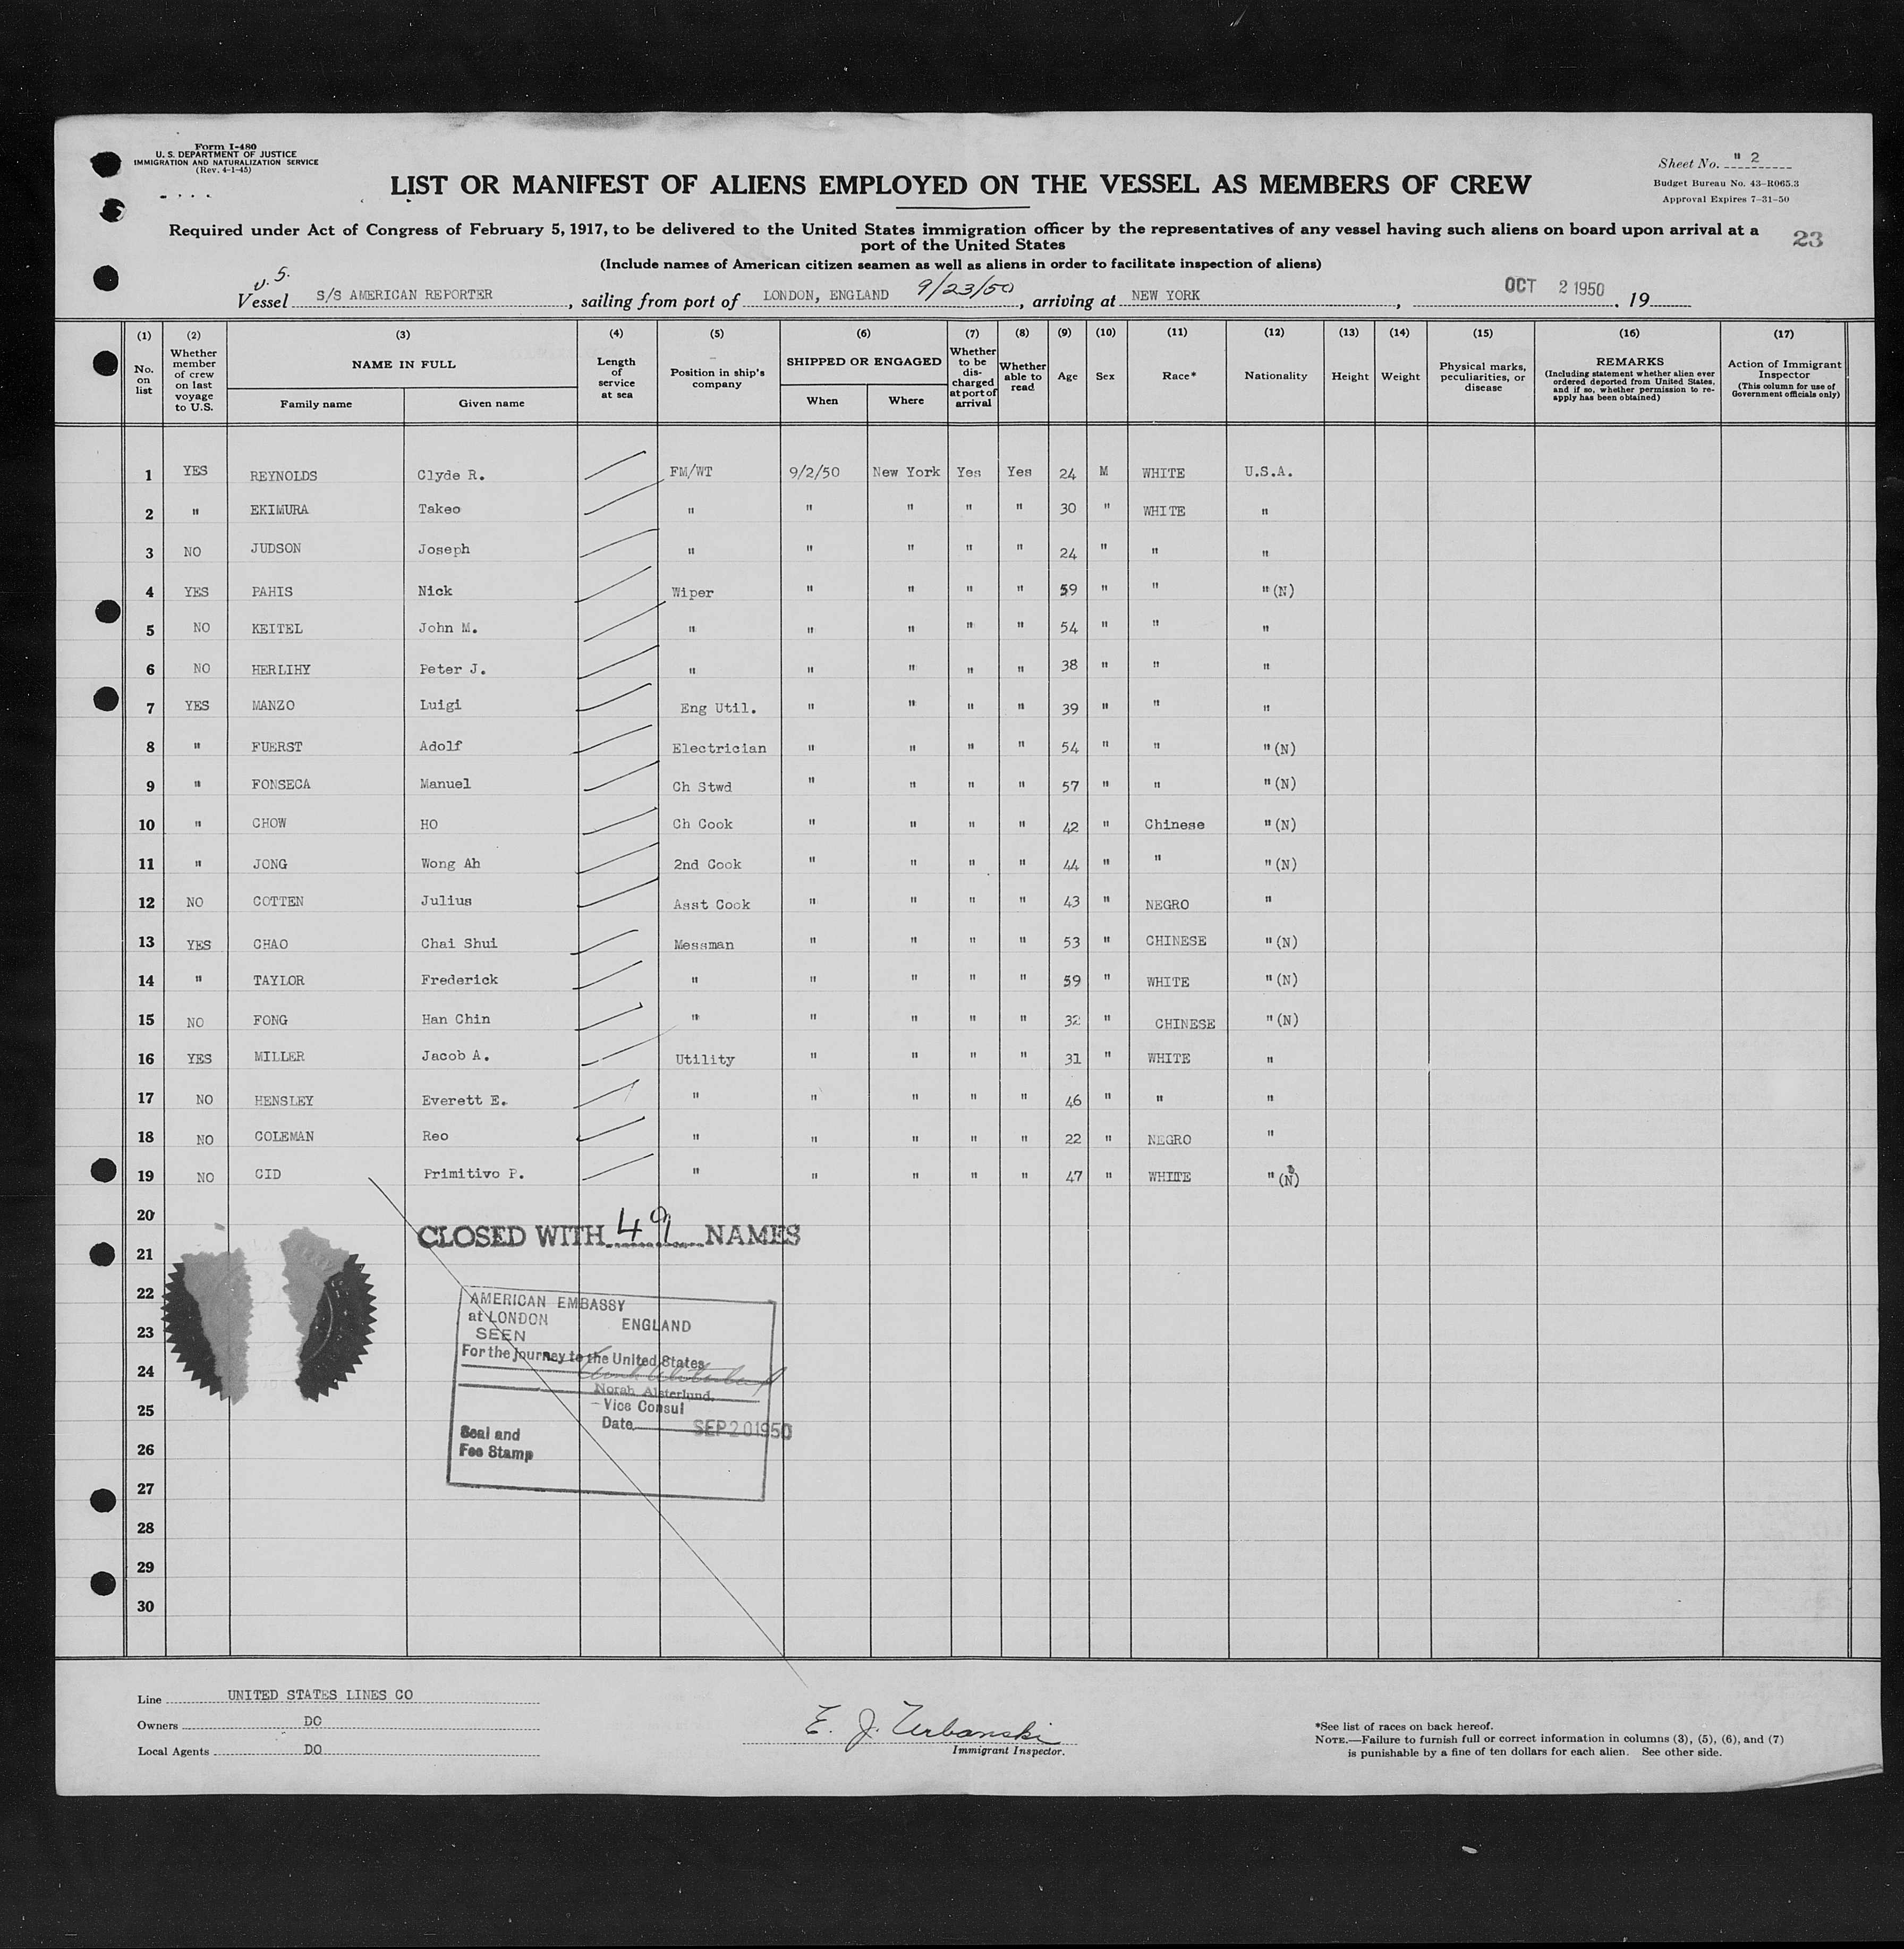 Form I-480
U. S. DEPARTMENT OF JUSTICE
IMMIGRATION AND NATURALIZATION SERVICE
(Rev. 4-1-45)
Sheet No. " 2
Budget Bureau No. 43-R065.3
Approval Expires 7-31-50
LIST OR MANIFEST OF ALIENS EMPLOYED ON THE VESSEL AS MEMBERS OF CREW
Required under Act of Congress of February 5, 1917, to be delivered to the United States immigration officer by the representatives of any vessel having such aliens on board upon arrival at a
port of the United States
23
(Include names of American citizen seamen as well as aliens in order to facilitate inspection of aliens)
U.S.
Vessel S/S AMERICAN REPORTER, sailing from port of LONDON, ENGLAND 9/23/50, arriving at NEW YORK, OCT 2 1950. 19
(1) (2) (3) (4) (5) (6) (7) (8) (9) (10) (11) (12) (13) (14) (15) (16) (17)
No. on list
Whether member of crew on last voyage to U.S.
NAME IN FULL
Family name
Given name
Length of service at sea
Position in ship's company
SHIPPED OR ENGAGED
When
Where
Whether to be discharged at port of arrival
Whether able to read
Age
Sex
Race*
Nationality
Height
Weight
Physical marks, peculiarities, or disease
REMARKS
(Including statement whether alien ever ordered deported from United States, and if so, whether permission to re-apply has been obtained)
Action of Immigrant Inspector
(This column for use of Government officials only)
1 YES REYNOLDS Clyde R. FM/WT 9/2/50 New York Yes Yes 24 M WHITE U.S.A.
2 " EKIMURA Takeo " " " " " 30 " WHITE "
3 NO JUDSON Joseph " " " " " 24 " " "
4 YES PAHIS Nick Wiper " " " " 59 " " " (N)
5 NO KEITEL John M. " " " " " 54 " " "
6 NO HERLIHY Peter J. " " " " " 38 " " "
7 YES MANZO Luigi Eng Util. " " " " 39 " " "
8 " FUERST Adolf Electrician " " " " 54 " " " (N)
9 " FONSECA Manuel Ch Stwd " " " " 57 " " " (N)
10 " CHOW HO Ch Cook " " " " 42 " Chinese " (N)
11 " JONG Wong Ah 2nd Cook " " " " 44 " " " (N)
12 NO COTTEN Julius Asst Cook " " " " 43 " NEGRO "
13 YES CHAO Chai Shui Messman " " " " 53 " CHINESE " (N)
14 " TAYLOR Frederick " " " " " 59 " WHITE " (N)
15 NO FONG Han Chin " " " " " 32 " CHINESE " (N)
16 YES MILLER Jacob A. Utility " " " " 31 " WHITE "
17 NO HENSLEY Everett E. " " " " " 46 " " "
18 NO COLEMAN Reo " " " " " 22 " NEGRO "
19 NO CID Primitivo P. " " " " " 47 " WHITE " (N)
20
CLOSED WITH 49 NAMES
21
22
AMERICAN EMBASSY
at LONDON ENGLAND
23
SEEN
For the journey to the United States
24
Norah Alsterlund.
25
Vice Consul
Date SEP 20 1950
Seal and
26
Fee Stamp
27
28
29
30
Line UNITED STATES LINES CO
Owners DO
Local Agents DO
E. J. Urbanski
Immigrant Inspector.
*See list of races on back hereof.
NOTE.—Failure to furnish full or correct information in columns (3), (5), (6), and (7)
is punishable by a fine of ten dollars for each alien. See other side.